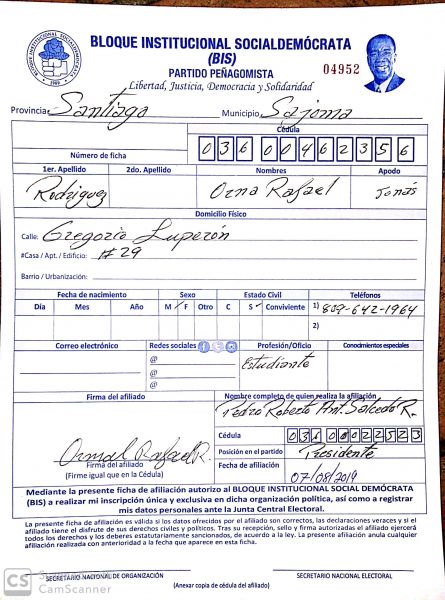 BLOQUE INSTITUCIONAL SOCIALDEMÓCRATA
(BIS)
PARTIDO PEÑAGOMISTA
04952
Libertad, Justicia, Democracia y Solidaridad
Provincia: Santiago Municipio Sajoma
Cédula
Número de ficha 036 0046235 6
1er. Apellido 2do. Apellido Nombres Apodo
Rodriguez Orna Rafael Jonás
Domicilio Físico
Calle: Gregorio Luperón
#Casa / Apt. / Edificio: #29
Barrio / Urbanización:
Fecha de nacimiento Sexo Estado Civil Teléfonos
Día Mes Año M F Otro C S Conviviente 1) 809-642-1964
2)
Correo electrónico Redes sociales Profesión/Oficio Conocimientos especiales
@ Estudiante
@
@
Firma del afiliado Nombre completo de quien realiza la afiliación
Pedro Roberto Ant. Salcedo R.
Cédula 036 0022523
Rafael R. Posición en el partido Presidente
Firma del afiliado Fecha de afiliación
(Firme igual que en la Cédula) 07/08/2019
Mediante la presente ficha de afiliación autorizo al BLOQUE INSTITUCIONAL SOCIAL DEMÓCRATA
(BIS) a realizar mi inscripción única y exclusiva en dicha organización política, así como a registrar
mis datos personales ante la Junta Central Electoral.
La presente ficha de afiliación es válida si los datos ofrecidos por el afiliado son correctos, las declaraciones veraces y si el
afiliado tiene el disfrute de sus derechos civiles y políticos. Tras su recepción, sello y firma autorizadas el afiliado ejercerá
todos los derechos y los deberes estatutariamente sancionados, de acuerdo a la ley. La presente afiliación anula cualquier
afiliación realizada con anterioridad a la fecha que aparece en esta ficha.
CS CamScanner
SECRETARIO NACIONAL DE ORGANIZACIÓN SECRETARIO NACIONAL ELECTORAL
(Anexar copia de cédula del afiliado)